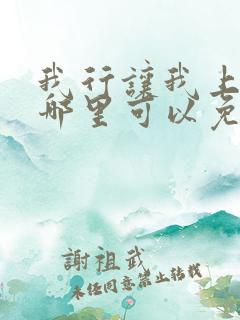 我行讓我上
哪里可以免
謝祖武
未经同意禁止转载